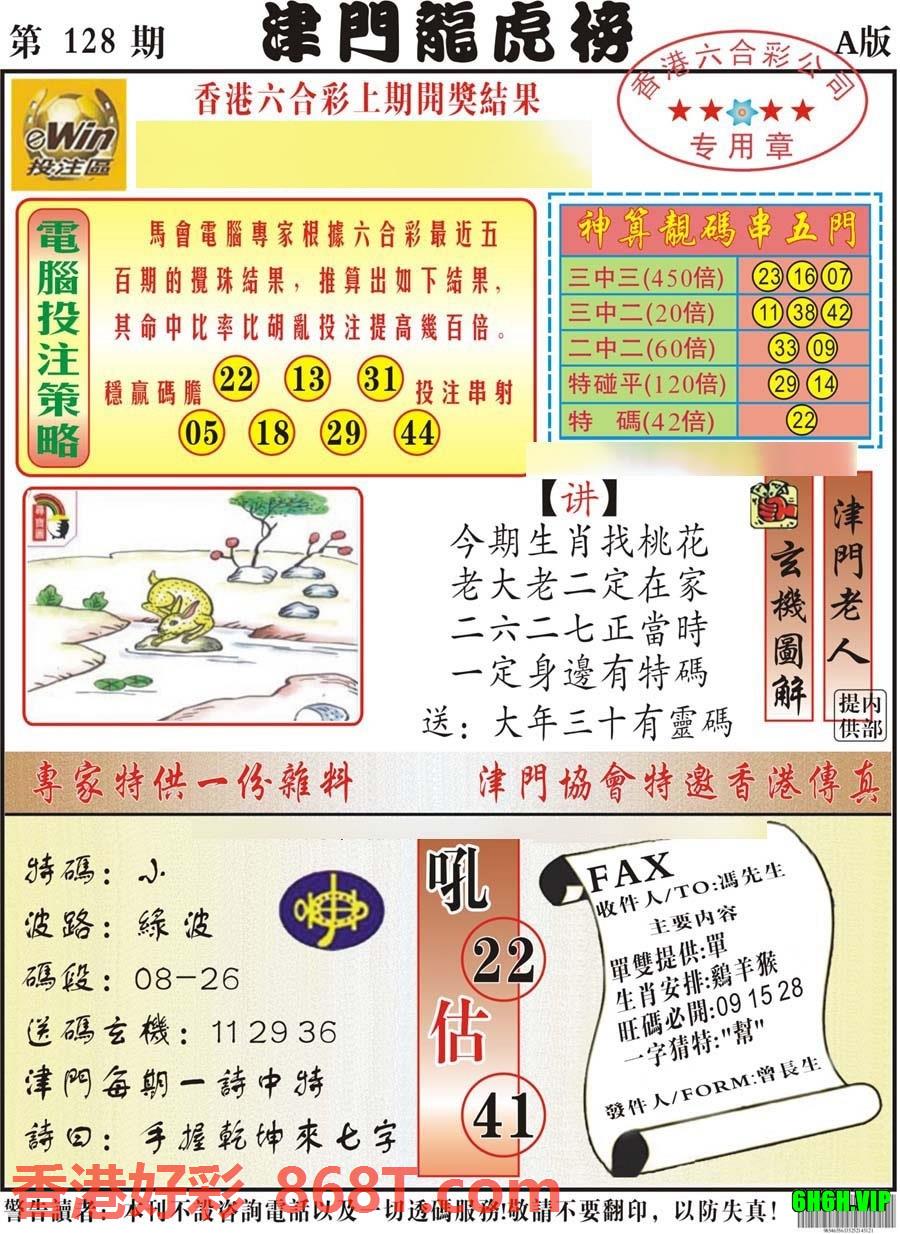 第 128 期
津門龍虎榜
A版
eWin
投注區
香港六合彩上期開獎結果
香港六合彩公司
★★★★
专用章
電腦投注策略
馬會電腦專家根據六合彩最近五
百期的攪珠結果，推算出如下結果，
其命中比率比胡亂投注提高幾百倍。
穩贏碼膽 22 13 31 投注串射
05 18 29 44
神算靓碼串五門
三中三(450倍) 23 16 07
三中二(20倍) 11 38 42
二中二(60倍) 33 09
特碰平(120倍) 29 14
特 碼(42倍) 22
尋寶圖
【讲】
今期生肖找桃花
老大老二定在家
二六二七正當時
一定身邊有特碼
送：大年三十有靈碼
玄機圖解
津門老人
内部提供
專家特供一份雜料
津門協會特邀香港傳真
特碼：小
波路：綠波
碼段：08-26
送碼玄機：11 29 36
津門每期一詩中特
詩曰：手握乾坤來七字
吼
22
估
41
FAX
收件人/TO:馮先生
主要内容
單雙提供:單
生肖安排:鷄羊猴
旺碼必開:09 15 28
一字猜特:"幫"
發件人/FORM:曾長生
香港好彩 868T.com
警告讀者：本刊不設咨詢電話以及一切透碼服務!敬請不要翻印，以防失真!
6H6H.VIP